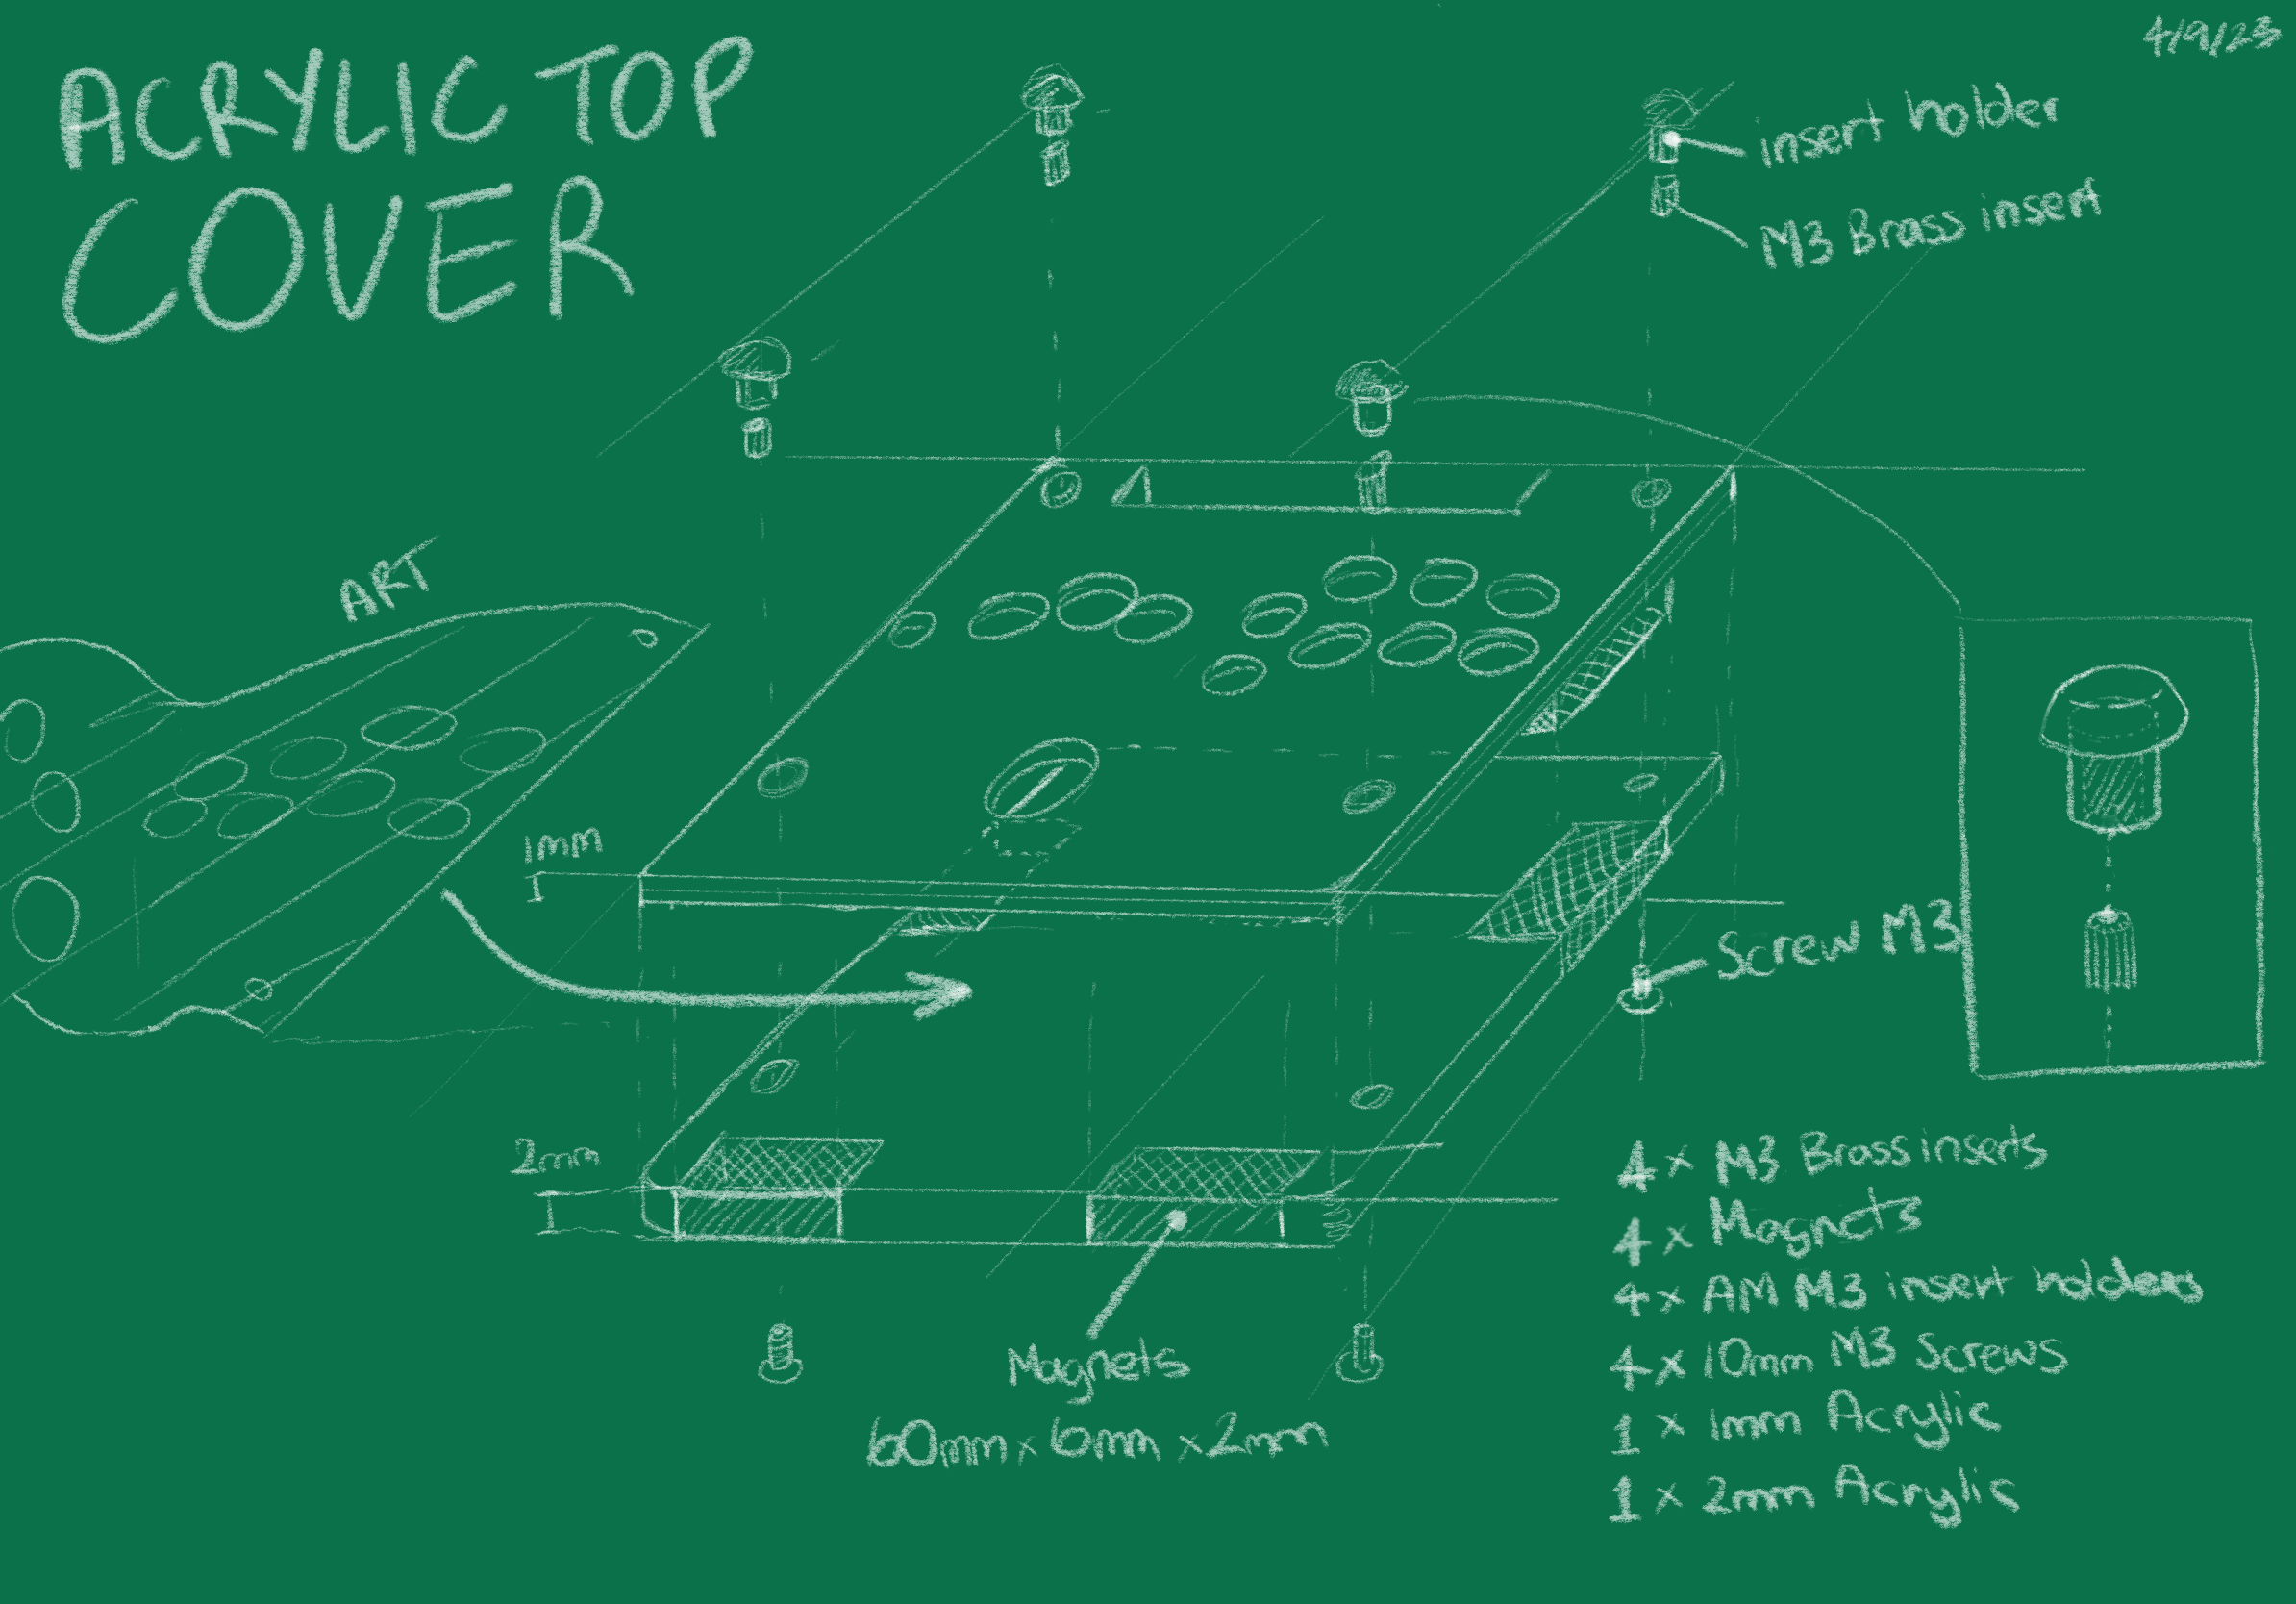 ACRYLIC TOP
COVER
4/9/23
insert holder
M3 Brass insert
ART
1mm
Screw M3
2mm
Magnets
60mm x 6mm x 2mm
4 x M3 Brass inserts
4 x Magnets
4 x AM M3 insert holders
4 x 10mm M3 Screws
1 x 1mm Acrylic
1 x 2mm Acrylic